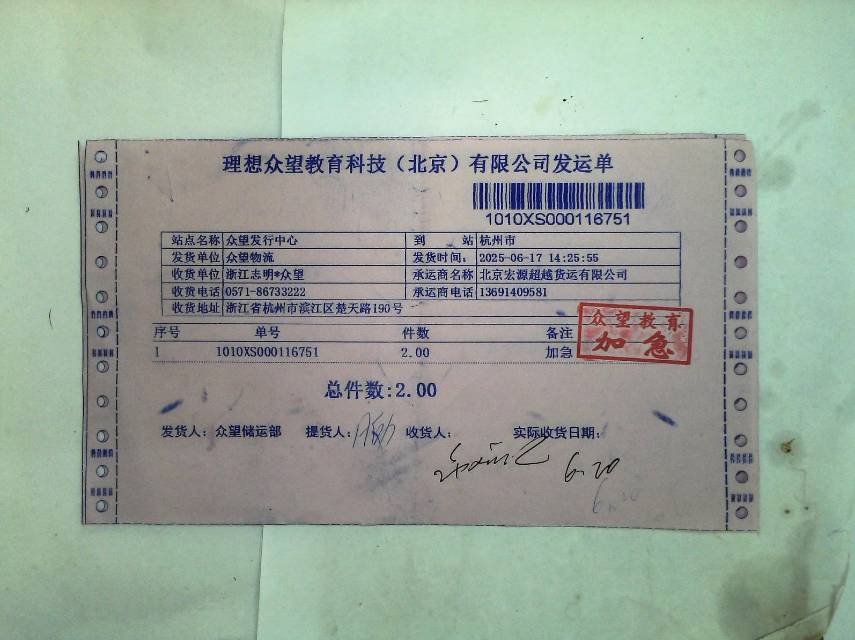 理想众望教育科技（北京）有限公司发运单
1010XS000116751
站点名称 众望发行中心 到站 杭州市
发货单位 众望物流 发货时间： 2025-06-17 14:25:55
收货单位 浙江志明*众望 承运商名称 北京宏源超越货运有限公司
收货电话 0571-86733222 承运商电话 13691409581
收货地址 浙江省杭州市滨江区楚天路190号
众望教育
加急
序号 单号 件数 备注
1 1010XS000116751 2.00 加急
总件数:2.00
发货人：众望储运部 提货人： 收货人： 实际收货日期：
6.20
6.20